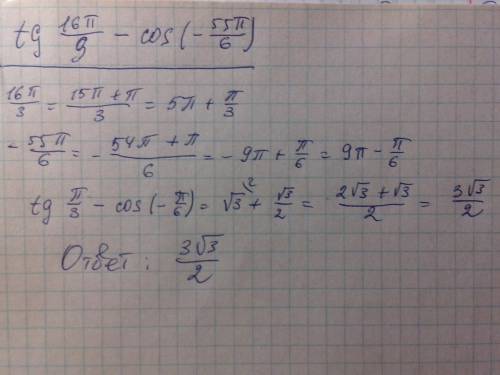 tg 16π/9 − cos(−55π/6)
16π/3 = 15π+π/3 = 5π + π/3
−55π/6 = − 54π+π/6 = −9π + π/6 = 9π − π/6
tg π/3 − cos(−π/6) = √3\2 + √3/2 = 2√3+√3/2 = 3√3/2
Ответ: 3√3/2